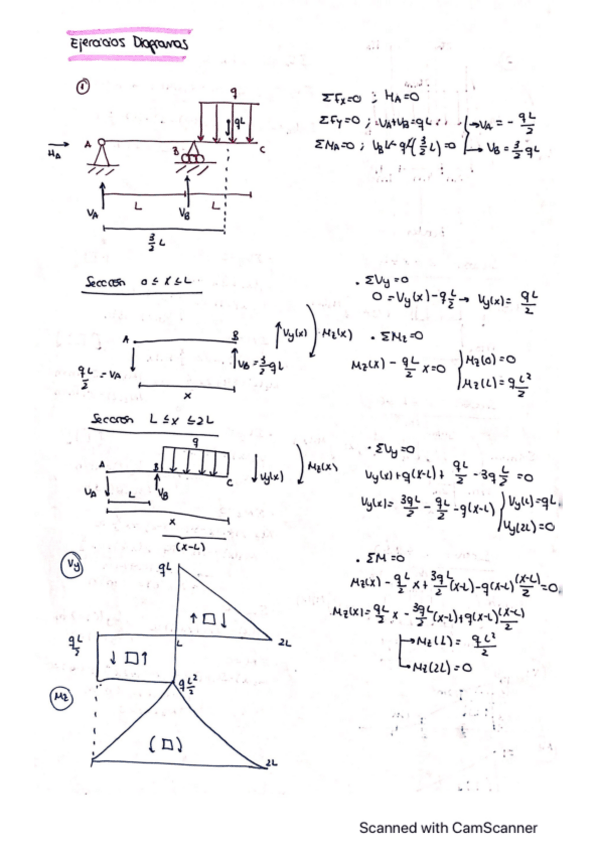 Ejercicios Diagramas
1
q
qL
A
B
C
HA
VA
L
VB
L
3/2 L
ΣFx=0 ; HA=0
ΣFy=0 ; VA+VB=qL → VA = - qL/2
ΣMA=0 ; VB·L - qL(3/2 L)=0 → VB = 3/2 qL
Sección 0 ≤ x ≤ L
A
B
Vy(x)
Mz(x)
qL/2 = VA
VB = 3/2 qL
x
· ΣVy=0
0 = Vy(x) - qL/2 → Vy(x) = qL/2
· ΣMz=0
Mz(x) - qL/2 x=0
Mz(0)=0
Mz(L)= qL²/2
Sección L ≤ x ≤ 2L
q
A
B
C
Vy(x)
Mz(x)
VA
L
VB
x
(x-L)
· ΣVy=0
Vy(x)+q(x-L)+ qL/2 - 3qL/2 =0
Vy(x)= 3qL/2 - qL/2 - q(x-L)
Vy(L)=qL
Vy(2L)=0
· ΣM=0
Mz(x) - qL/2 x + 3qL/2 (x-L) - q(x-L) (x-L)/2 =0
Mz(x)= qL/2 x - 3qL/2 (x-L)+q(x-L) (x-L)/2
→ Mz(L)= qL²/2
→ Mz(2L)=0
Vy
qL
↑□↓
qL/2
L
2L
↓□↑
Mz
qL²/2
(□)
2L
Scanned with CamScanner